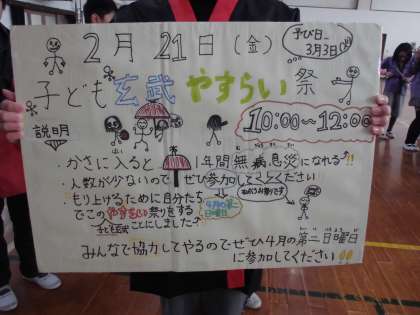 2月21日(金)
予び日→
3月3日
子ども玄武やすらい祭
10:00~12:00
説明
・かさに入ると 1年間無病息災になれる!!
・人数が少ないのでぜひ参加してください
・もり上げるために自分たち
でこの やすらい祭りをする
子ども玄武
ことにしました
4月の第二
日曜日
みんなで協力してやるのでぜひ4月の第二日曜日
に参加してください!!